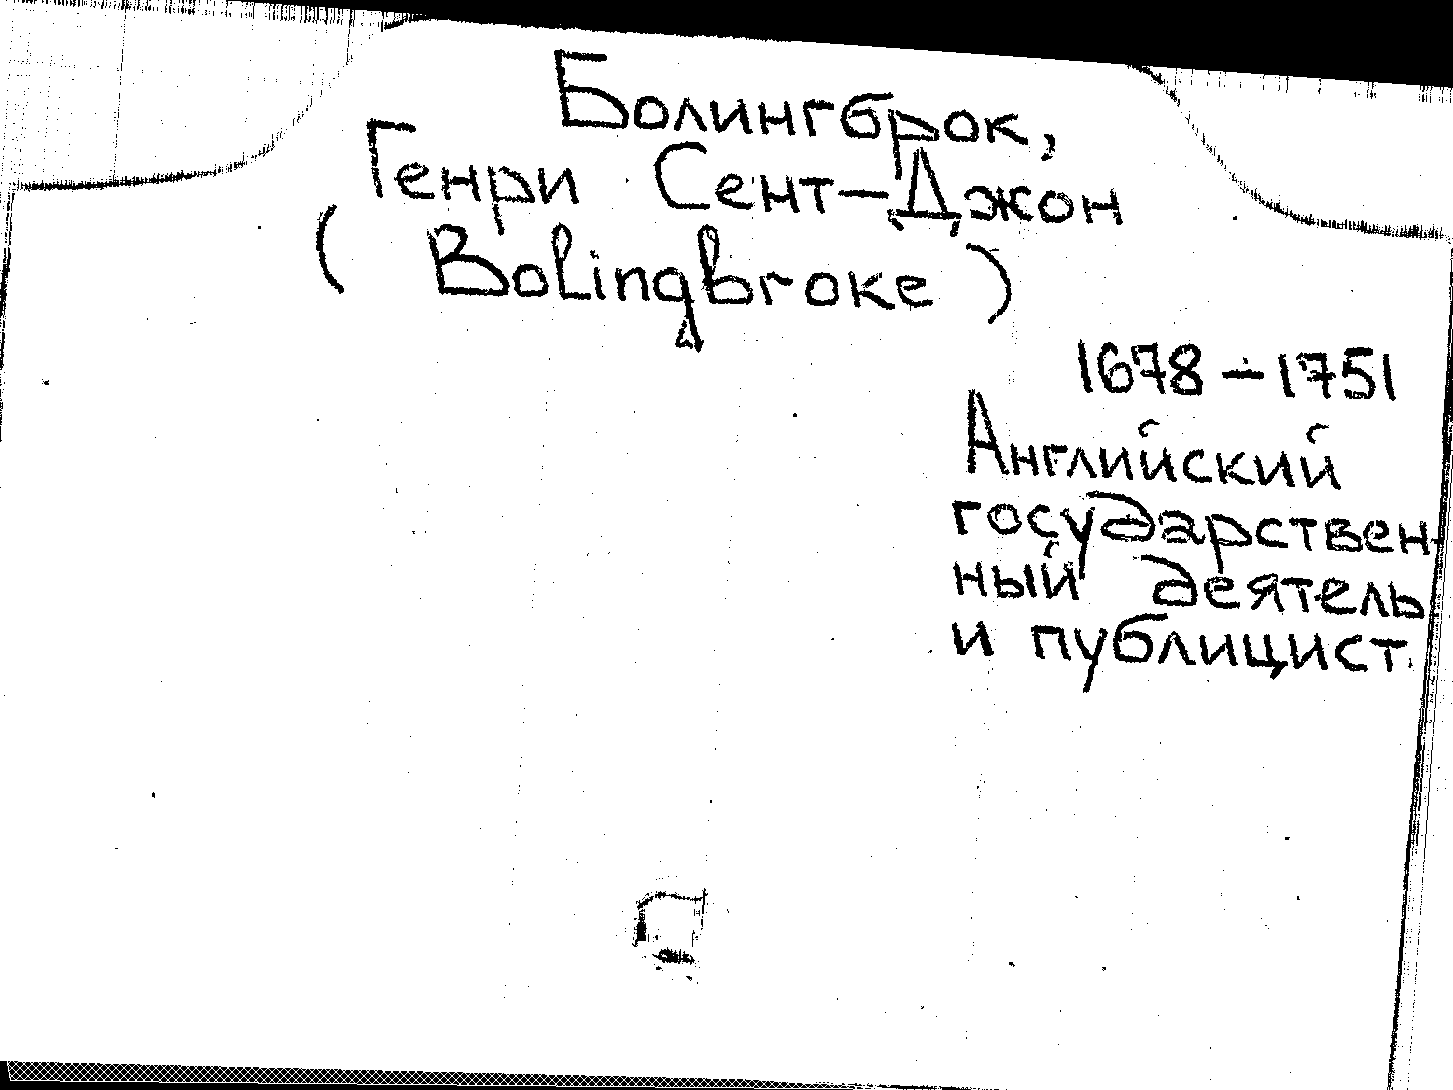 Болингброк,
Генри Сент-Джон
( Bolingbroke )
1678-1751
Английский
государствен-
ный деятель
и публицист.